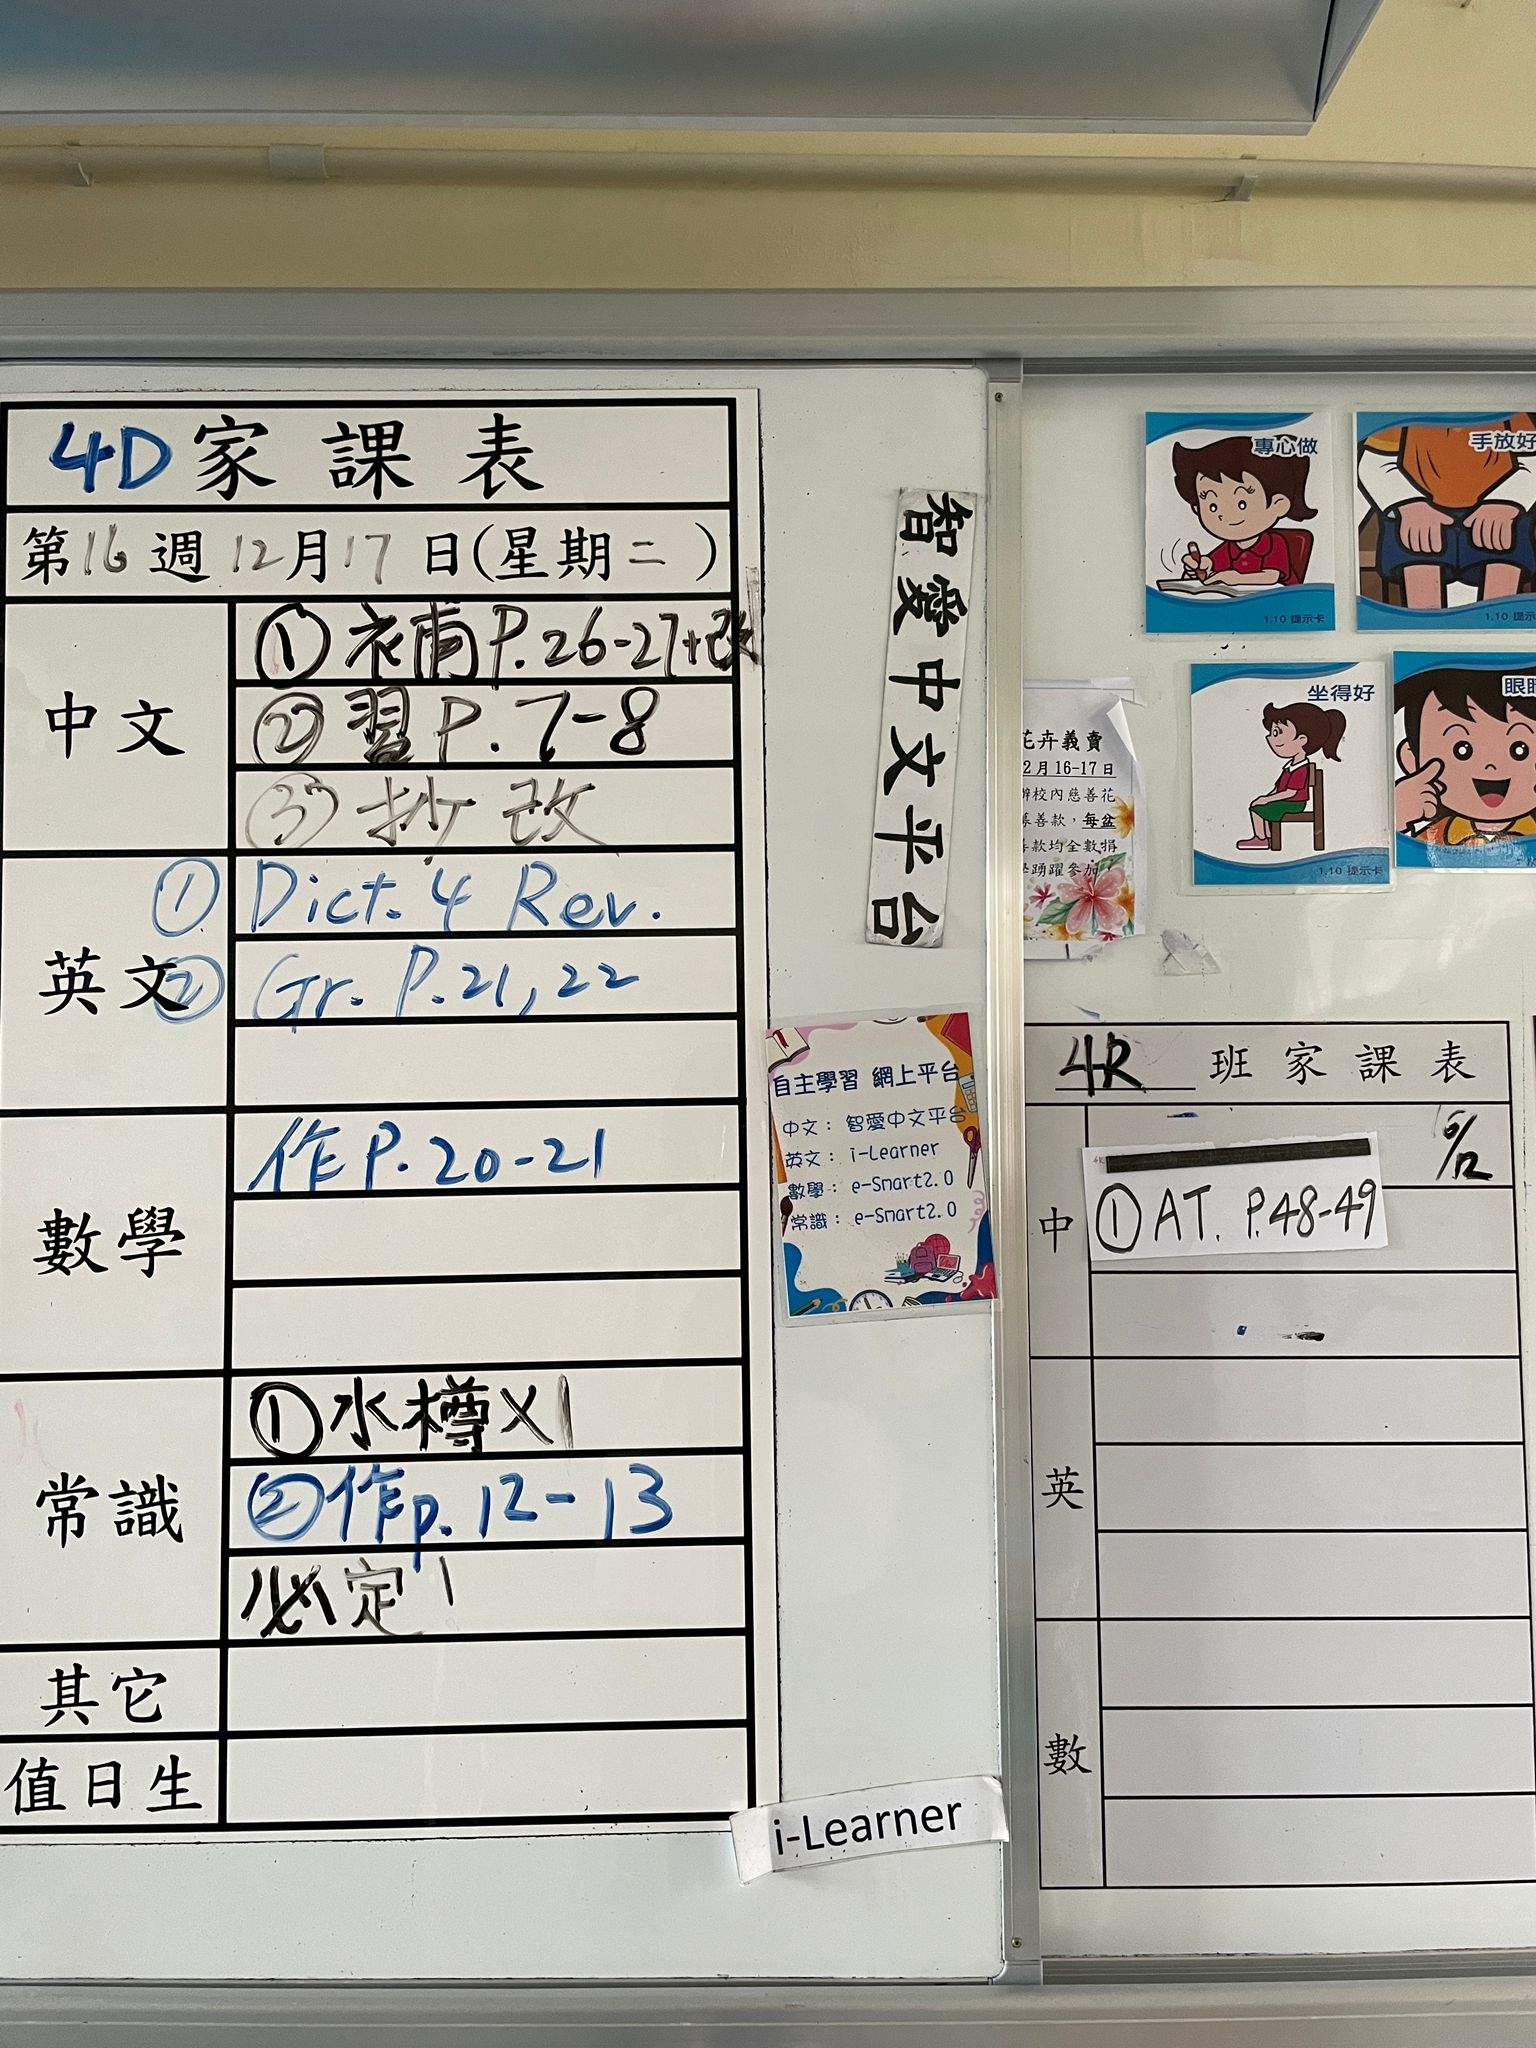 4D家課表
第16週12月17日(星期二)
中文
①補P.26-27+改
②習P.7-8
③抄改
英文
①Dict.4 Rev.
②Gr. P.21,22
數學
作P.20-21
常識
①水樽×1
②作p.12-13
必定1
其它
值日生
智愛中文平台
自主學習 網上平台
中文：智愛中文平台
英文：i-Learner
數學：e-Smart2.0
常識：e-Smart2.0
i-Learner
專心做
1.10 提示卡
手放好
1.10 提示
坐得好
1.10 提示卡
花卉義賣
2月16-17日
校內慈善花
善款，每盆
款均全數捐
踴躍參加，
4R班家課表
中
16/12
①AT. P.48-49
英
數